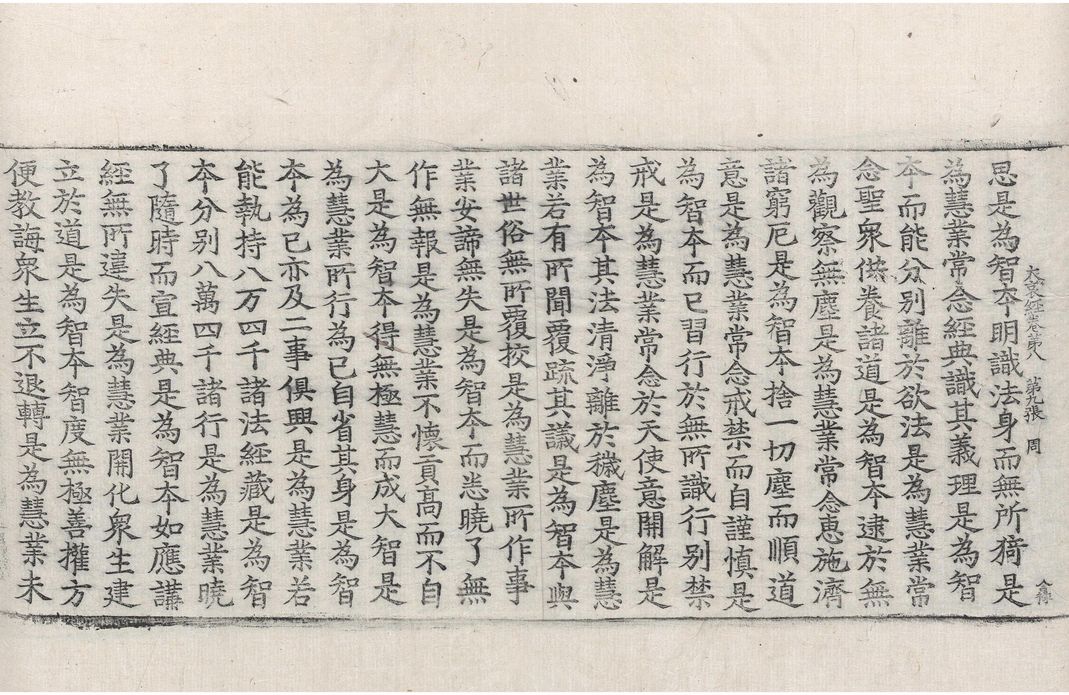 大哀經卷第八 第九張 周
思是為智夲明識法身而無所猗是
為慧業常念經典識其義理是為智
夲而能分別離於欲法是為慧業常
念聖衆供養諸道是為智夲逮於無
為觀察無塵是為慧業常念恵施濟
諸窮厄是為智夲捨一切塵而順道
意是為慧業常念戒禁而自謹慎是
為智夲而已習行於無所識行別禁
戒是為慧業常念於天使意開解是
為智夲其法清淨離於穢塵是為慧
業若有所聞覆䟽其議是為智夲與
諸世俗無所覆挍是為慧業所作事
業安諦無失是為智夲而悉曉了無
作無報是為慧業不懷貢髙而不自
大是為智夲得無極慧而成大智是
為慧業所行為己自省其身是為智
夲為己亦及二事俱興是為慧業若
能執持八万四千諸法經藏是為智
夲分别八萬四千諸行是為慧業曉
了隨時而宣經典是為智夲如應講
經無所違失是為慧業開化衆生建
立於道是為智夲智度無極善權方
便教誨衆生立不退轉是為慧業未